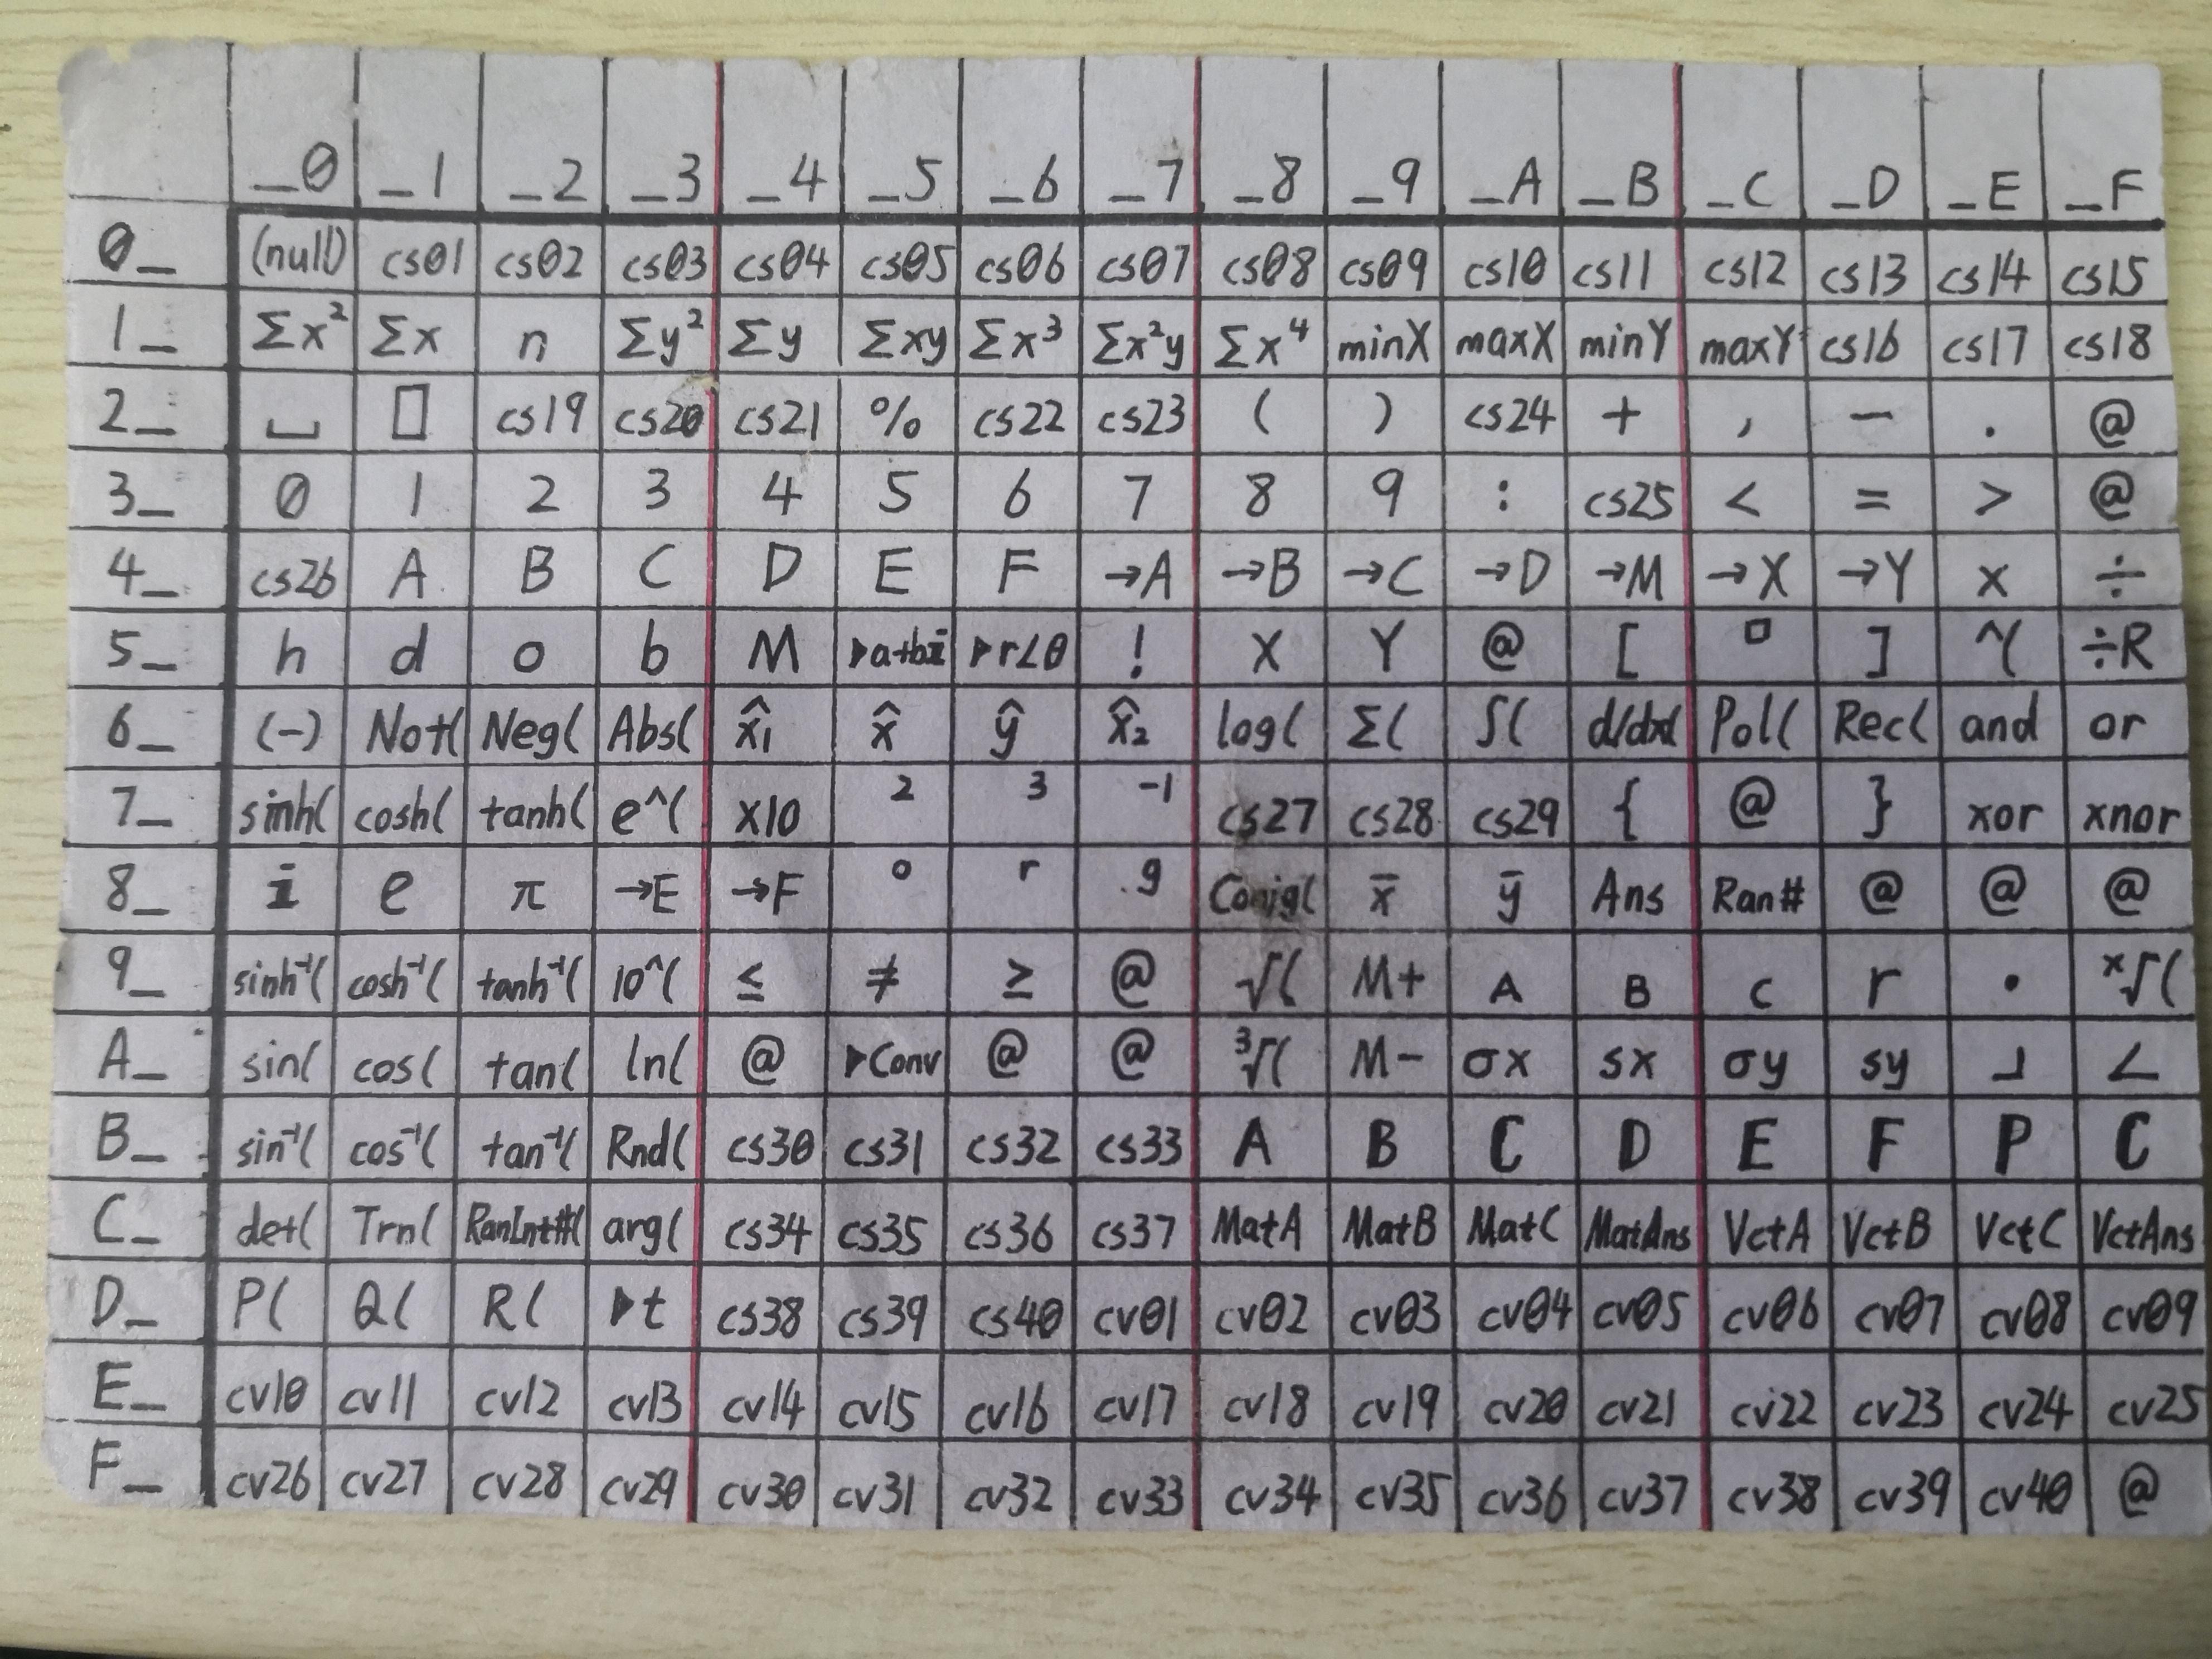 _0 _1 _2 _3 _4 _5 _6 _7 _8 _9 _A _B _C _D _E _F
0_ (null) cs01 cs02 cs03 cs04 cs05 cs06 cs07 cs08 cs09 cs10 cs11 cs12 cs13 cs14 cs15
1_ Σx² Σx n Σy² Σy Σxy Σx³ Σx²y Σx⁴ minX maxX minY maxY cs16 cs17 cs18
2_ ⎵ ▯ cs19 cs20 cs21 % cs22 cs23 ( ) cs24 + , − . @
3_ 0 1 2 3 4 5 6 7 8 9 : cs25 < = > @
4_ cs26 A B C D E F →A →B →C →D →M →X →Y × ÷
5_ h d o b M ▶a+bi ▶r∠θ ! X Y @ [ ▫ ] ^( ÷R
6_ (-) Not( Neg( Abs( x̂₁ x̂ ŷ x̂₂ log( Σ( ∫( d/dx( Pol( Rec( and or
7_ sinh( cosh( tanh( e^( ×10 ² ³ ⁻¹ cs27 cs28 cs29 { @ } xor xnor
8_ i e π →E →F ° ʳ ᵍ Conjg( x̄ ȳ Ans Ran# @ @ @
9_ sinh⁻¹( cosh⁻¹( tanh⁻¹( 10^( ≤ ≠ ≥ @ √( M+ A B C r • ˣ√(
A_ sin( cos( tan( ln( @ ▶Conv @ @ ³√( M− σx sx σy sy ⅃ ∠
B_ sin⁻¹( cos⁻¹( tan⁻¹( Rnd( cs30 cs31 cs32 cs33 A B C D E F P C
C_ det( Trn( RanInt#( arg( cs34 cs35 cs36 cs37 MatA MatB MatC MatAns VctA VctB VctC VctAns
D_ P( Q( R( ▶t cs38 cs39 cs40 cv01 cv02 cv03 cv04 cv05 cv06 cv07 cv08 cv09
E_ cv10 cv11 cv12 cv13 cv14 cv15 cv16 cv17 cv18 cv19 cv20 cv21 cv22 cv23 cv24 cv25
F_ cv26 cv27 cv28 cv29 cv30 cv31 cv32 cv33 cv34 cv35 cv36 cv37 cv38 cv39 cv40 @